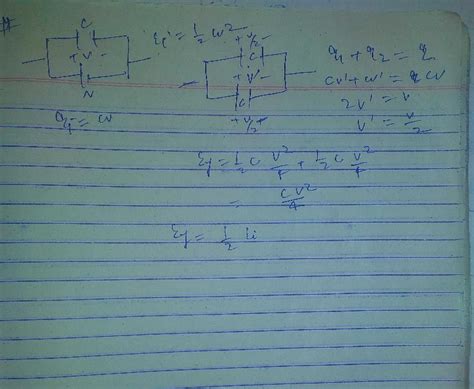 C
+ V -
N
Qi = CV
Ei = 1/2 CV²
+ V/2 -
C
+ V' -
C
+ V/2 +
q1 + q2 = q
CV' + CV' = CV
2V' = V
V' = V/2
Ef = 1/2 C V²/4 + 1/2 C V²/4
= CV²/4
Ef = 1/2 Ei